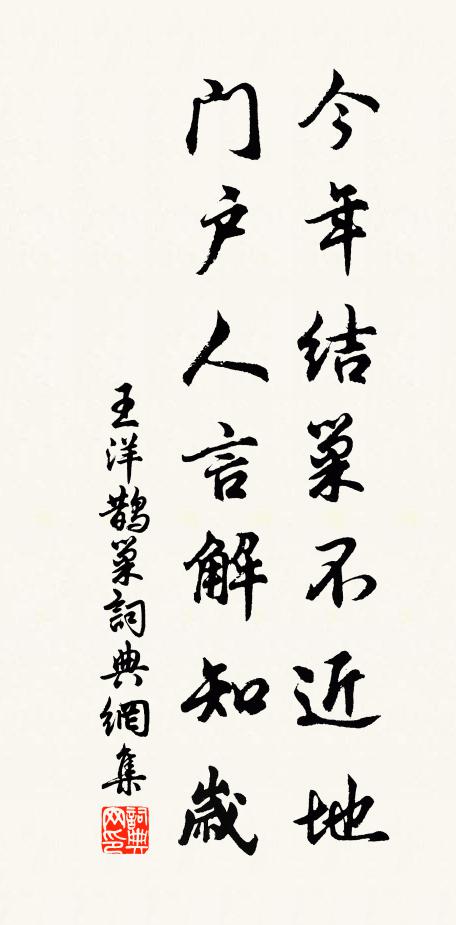 今年结巢不近地
门户人言解知歲
王洋鹊巢詞典網集
詞典网印